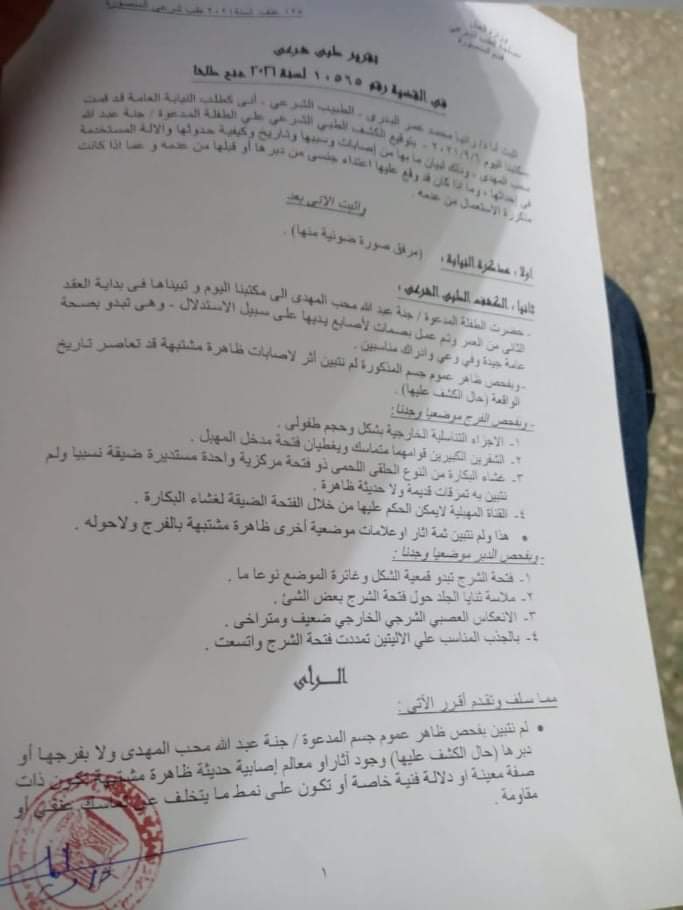 ١٢٥ عنف لسنة ٢٠٢١ طب شرعي المنصورة
وزارة العدل
مصلحة الطب الشرعي
تقرير طبي شرعي
في القضية رقم ١٠٥٦٥ لسنة ٢٠٢١ جنح طلخا
أثبت أنا د/ رانيا محمد عمر البدري ، الطبيب الشرعي ، أنى كطلب النيابة العامة قد قمت
بمكتبنا اليوم ٢٠٢١/٩/٦ ، بتوقيع الكشف الطبي الشرعي علي الطفلة المدعوة / جنة عبد الله
محب المهدى ، وذلك لبيان ما بها من إصابات وسببها وتاريخ وكيفية حدوثها والآلة المستخدمة
فى إحداثها ، وما اذا كان قد وقع عليها اعتداء جنسى من دبرها أو قبلها من عدمه و عما إذا كانت
متكررة الاستعمال من عدمه .
واثبت الآتي بعد
أولا : مذكرة النيابة : (مرفق صورة ضوئية منها) .
ثانيا : الكشف الطبي الشرعي :
- حضرت الطفلة المدعوة / جنة عبد الله محب المهدى الى مكتبنا اليوم و تبيناها فى بداية العقد
الثانى من العمر وتم عمل بصمات لأصابع يديها على سبيل الاستدلال - وهى تبدو بصحة
عامة جيدة وفي وعي وادراك مناسبين .
- وبفحص ظاهر عموم جسم المذكورة لم نتبين أثر لاصابات ظاهرة مشتبهة قد تعاصر تاريخ
الواقعة (حال الكشف عليها) .
- وبفحص الفرج موضعيا وجدنا :
١- الاجزاء التناسلية الخارجية بشكل وحجم طفولى .
٢- الشفرين الكبيرين قوامهما متماسك ويغطيان فتحة مدخل المهبل .
٣- غشاء البكارة من النوع الحلقى اللحمى ذو فتحة مركزية واحدة مستديرة ضيقة نسبيا ولم
نتبين به تمزقات قديمة ولا حديثة ظاهرة .
٤- القناة المهبلية لايمكن الحكم عليها من خلال الفتحة الضيقة لغشاء البكارة .
• هذا ولم نتبين ثمة اثار اوعلامات موضعية أخرى ظاهرة مشتبهة بالفرج ولاحوله .
- وبفحص الدبر موضعيا وجدنا :
١- فتحة الشرج تبدو قمعية الشكل وغائرة الموضع نوعا ما .
٢- ملاسة ثنايا الجلد حول فتحة الشرج بعض الشئ .
٣- الانعكاس العصبي الشرجي الخارجي ضعيف ومتراخى .
٤- بالجذب المناسب علي الاليتين تمددت فتحة الشرج واتسعت .
الــرأى
مما سلف وتقدم أقرر الآتي :
• لم نتبين بفحص ظاهر عموم جسم المدعوة / جنة عبد الله محب المهدى ولا بفرجها أو
دبرها (حال الكشف عليها) وجود آثاراو معالم إصابية حديثة ظاهرة مشتبهة تكون ذات
صفة معينة او دلالة فنية خاصة أو تكون على نمط ما يتخلف عن تماسك عنفى أو
مقاومة .
١